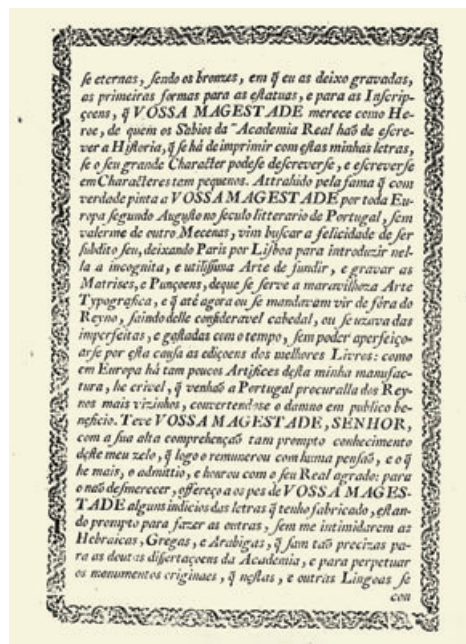 se eternas, sendo os bronzes, em q̃ eu as deixo gravadas,
as primeiras formas para as estatuas, e para as Inscrip-
çoens, q̃ VOSSA MAGESTADE merece como He-
roe, de quem os Sabios da Academia Real haõ de escre-
ver a Historia, q̃ se há de imprimir com estas minhas letras,
se o seu grande Character podese descreverse, e escreverse
em Characteres tem pequenos. Attrahido pela fama q̃ com
verdade pinta a VOSSA MAGESTADE por toda Eu-
ropa segundo Augusto no seculo litterario de Portugal, sem
valerme de outro Mecenas, vim buscar a felicidade de ser
subdito seu, deixando Paris por Lisboa para introduzir nel-
la a incognita, e utilissima Arte de fundir, e gravar as
Matrises, e Punçoens, deque se serve a maravilhoza Arte
Typografica, e q̃ até agora ou se mandavam vir de fóra do
Reyno, saindo delle consideravel cabedal, ou se uzava das
imperfeitas, e gastadas com o tempo, sem poder aperfeiço-
arse por esta causa as ediçoens dos melhores Livros: como
em Europa há tam poucos Artifices desta minha manufac-
tura, he crivel, q̃ venhaõ a Portugal procuralla dos Rey-
nos mais vizinhos, convertendose o damno em publico be-
neficio. Teve VOSSA MAGESTADE, SENHOR,
com a sua alta comprehençaõ tam prompto conhecimento
deste meu zelo, q̃ logo o remunerou com huma pensaõ, e o q̃
he mais, o admittio, e honrou com o seu Real agrado: para
o naõ desmerecer, offereço a os pes de VOSSA MAGES-
TADE alguns indicios das letras q̃ tenho fabricado, estan-
do prompto para fazer as outras, sem me intimidarem as
Hebraicas, Gregas, e Arabigas, q̃ sam taõ precizas pa-
ra as doutas dissertaçoens da Academia, e para perpetuar
os monumentos originaes, q̃ nestas, e outras Lingoas se
con